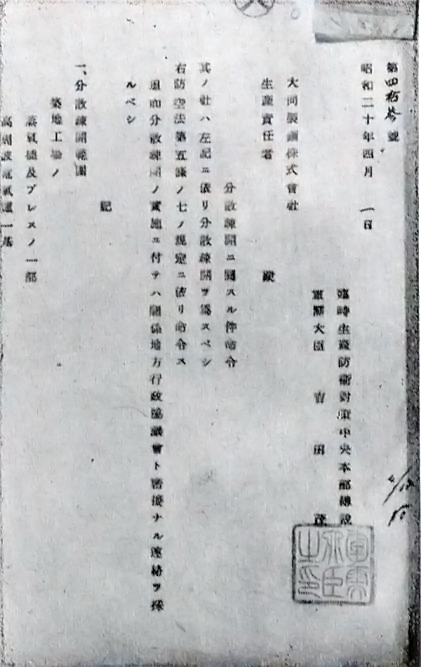 第四拾參號
昭和二十年四月 一日
臨時生產防衞對策中央本部總裁
軍需大臣 吉田 茂
軍需大臣之印
大同製鋼株式會社
生產責任者 殿
分散疎開ニ關スル件命令
其ノ社ハ左記ニ依リ分散疎開ヲ爲スベシ
右防空法第五條ノ七ノ規定ニ依リ命令ス
追而分散疎開ノ實施ニ付テハ關係地方行政協議會ト密接ナル連絡ヲ採
ルベシ
記
一、分散疎開範圍
築地工場ノ
蒸氣槌及プレスノ一部
高周波電氣爐一基